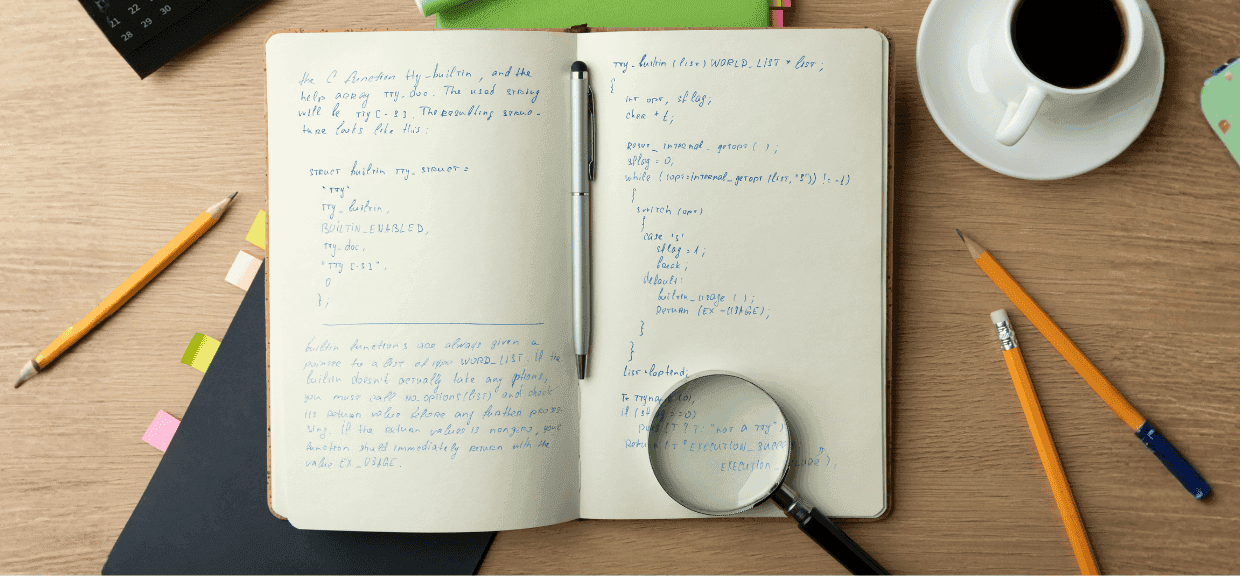 21 22
28 29 30
the C function tty_builtin, and the
help array TTY_doc. The used string
will be TTY [-S]. The resulting struc-
ture looks like this:
STRUCT builtin TTY_STRUCT =
"TTY"
TTY_builtin,
BUILTIN_ENABLED,
TTY_doc,
"TTY [-S]",
0
};
builtin functions are always given a
pointer to a list of type WORD_LIST. If the
builtin doesn't actually take any options,
you must call no_options(list) and check
its return value before any further proces-
sing. If the return value is nonzero, your
function should immediately return with the
value EX_USAGE.
TTY_builtin (list) WORLD_LIST * list;
{
int opt, sflag;
char * t;
Reset_internal_getopt ( );
sflag = 0;
while ( (opt=internal_getopt (list, "S")) != -1)
{
switch (opt)
{
case 's'
sflag = 1;
default:
builtin_usage ( );
Return (EX-USAGE);
}
}
if
"not a TTY")